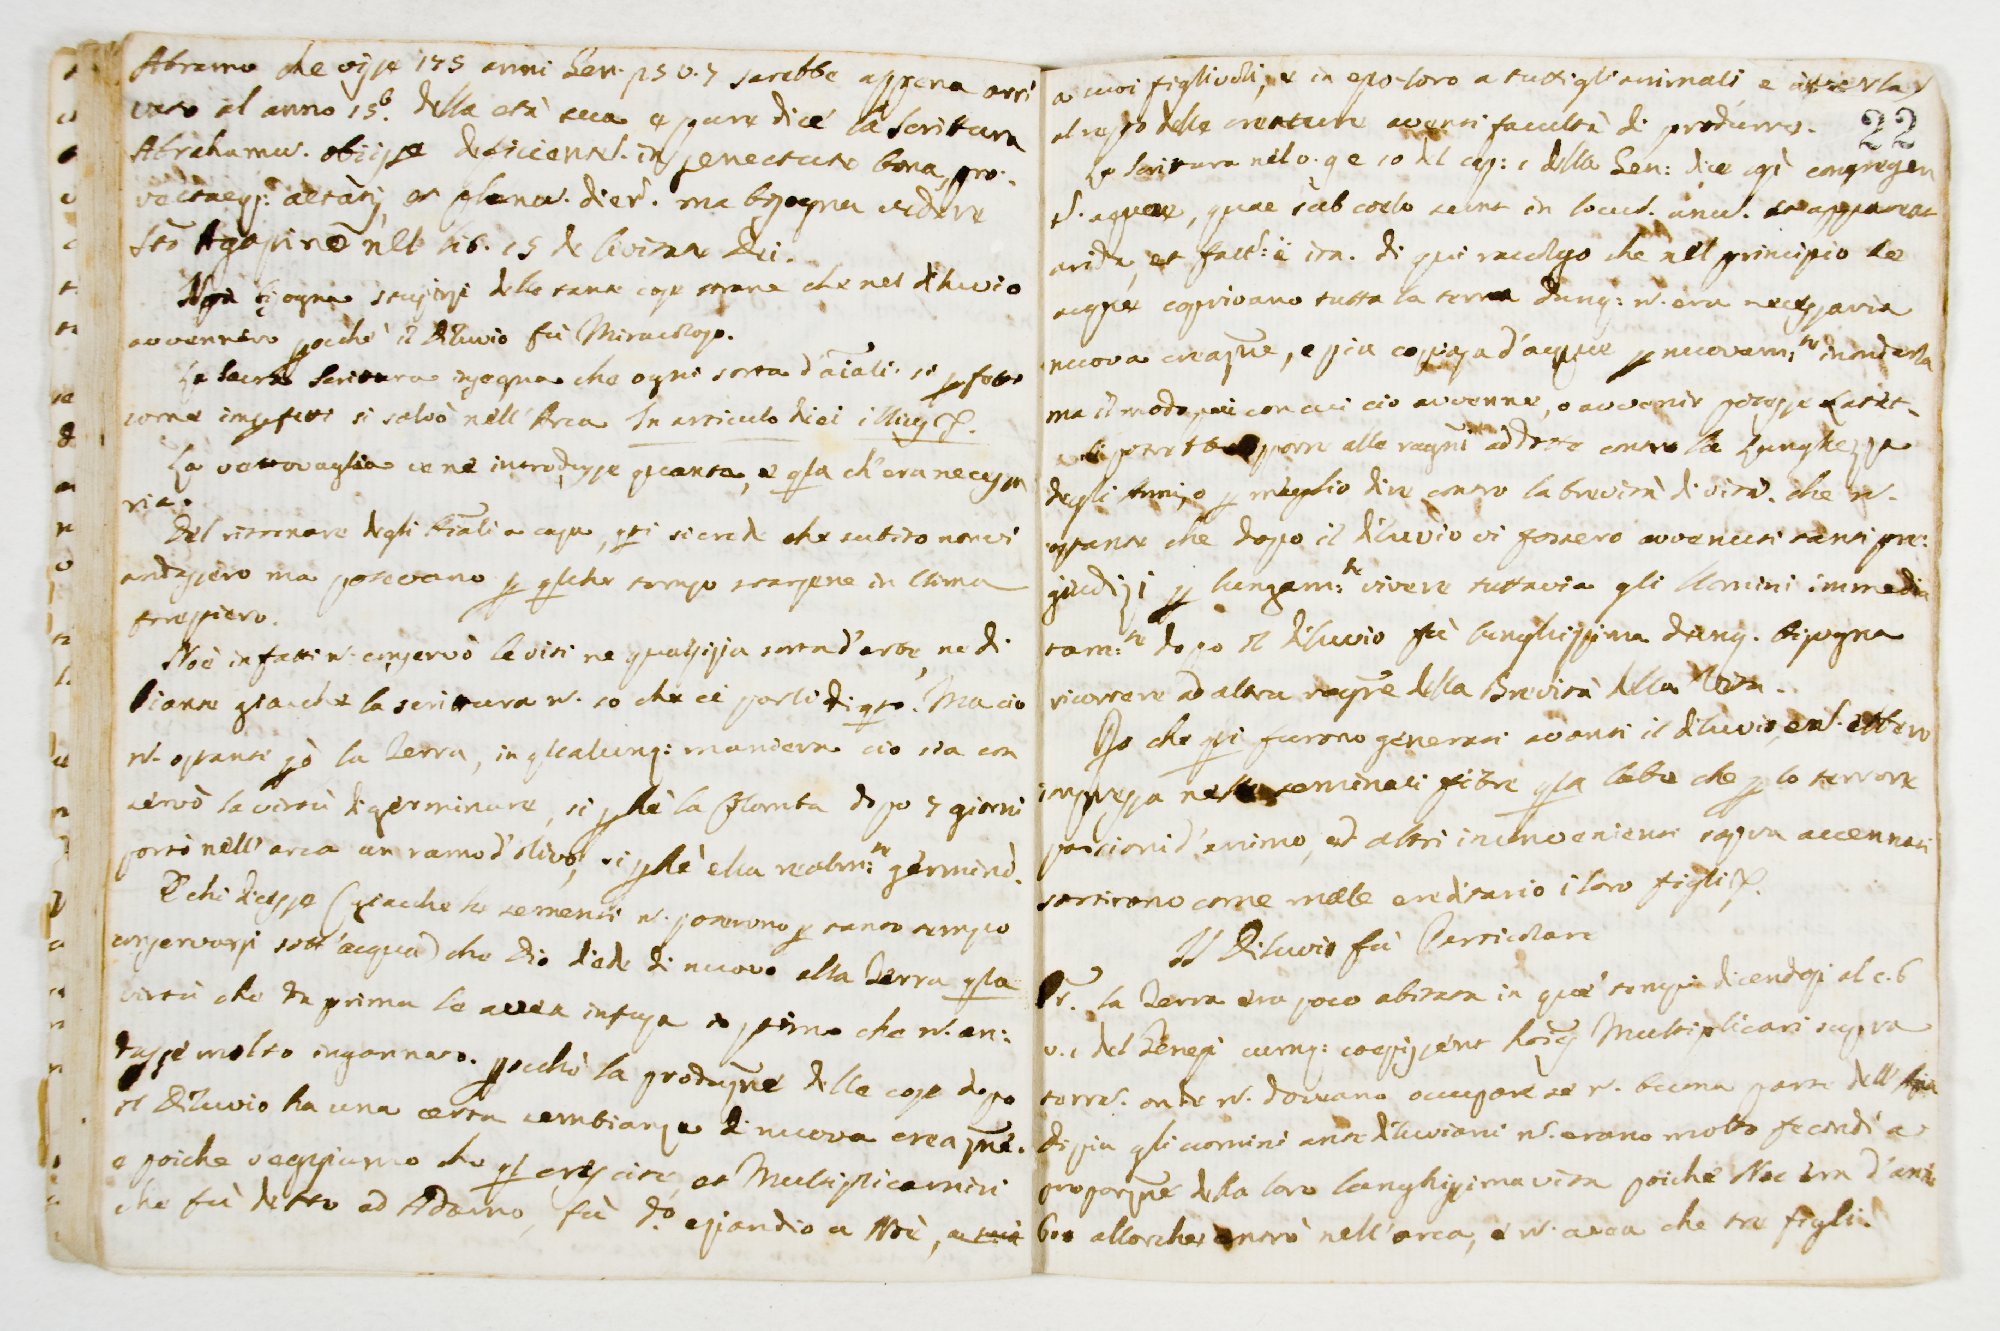 Abramo che visse 175 anni Gen. 25 v. 7 sarebbe appena arri
vato al anno 15º. della età sua e pure dice la Scrittura
Abrahamus. obiisse deficiens. in senectute bona, pro-
vectaeq: aetatis, et plenus. dierû. ma bisogna vedere
Sto Agostino nel lib. 15 de Civitate Dei.
Non bisogna stupirsi delle tante cose strane che nel diluvio
avvennero poiche il Diluvio fù Miracoloso.
La Sacra Scrittura insegna che ogni sorta d'aîali. si pfetti
come impfetti si salvò nell' Arca In articulo diei illius
La vettovaglia ve ne introdusse quanta, e qlla ch'era necessa
ria.
Del ritornare degli Aîali a casa, qsti si crede che subito non vi
andassero ma potevano p qlche tempo starsene in clima
straniero.
Noè infatti n. conservò le viti ne qualsisia sorta d'erbe, ne di
Piante giacche la scrittura n. so che ci parli di qsto. Ma cio
n. ostante pò la Terra, in qualunq: maniera cio sia con
servò la virtù di germinare, si pche la Colomba dopo 7 giorni
portò nell' arca un ramo d'olivo, si pche ella realm:te germinò.
E chi dicesse (giacche le sementi n. poterono p tanto tempo
conservarsi sott'acqua) che Dio diede di nuovo alla Terra qlla
virtù che da prima le avea infusa io stimo che n. an:
dasse molto ingannato. pocchè la produzne delle cose dopo
il Diluvio ha una certa sembianza di nuova creazne.
e poiche veggiamo che ql crescite, et Multiplicamini
che fù detto ad Adamo, fù dº. eziandio a Noè,
a suoi figliuoli, e in esso loro a tutti gli animali e
al resto delle creature aventi facultà di prodursi.
22
La Scrittura nel v. 9 e 10 del cap: 1 della Gen: dice così congregen
t. aquae, quae sub coelo sunt in locum. unum. et appareat
arida, et fact: è ita. di qui raccolgo che nel principio le
acque coprivano tutta la terra dunq: n. era necessaria
nuova creazne, e piu copiosa d'acque p nuovam:te inondarla
ma il modo poi con cui cio avvenne, o avvenir potesse
si potrebbe opporre alle ragni addotte contro la Lunghezza
degli Anni, o p meglio dire contro la brevità di vita. che n.
ostante che dopo il diluvio vi fossero avvenuti tanti pre:
giudizi p lungam:te vivere tuttavia gli Uomini immedia
tam:te dopo il diluvio fù lunghissima dunq. bisogna
ricorrere ad altra ragne della Brevità della Vita.
Qo che qsti furono generati avanti il diluvio, e n. ebbero
impressa nelle seminali fibre qlla labe che p lo terrore
passioni d'animo, ed altri inconvenienti sopra accennati
sortirono come male ereditario i loro figli
Il Diluvio fù Particolare
Pr. la Terra era poco abitata in que' tempi dicendosi al c. 6
v. 1 del Genesi cumq: coepissent hoês Multiplicari supra
terram. onde n. doveano occupare se n. buona parte dell'Asia
Dipiu gli uomini ante diluviani n. erano molto fecondi a
proporzne della loro lunghissima vita poiche Noe era d'anni
600 allorche entrò nell'arca, e n. avea che tre figli.